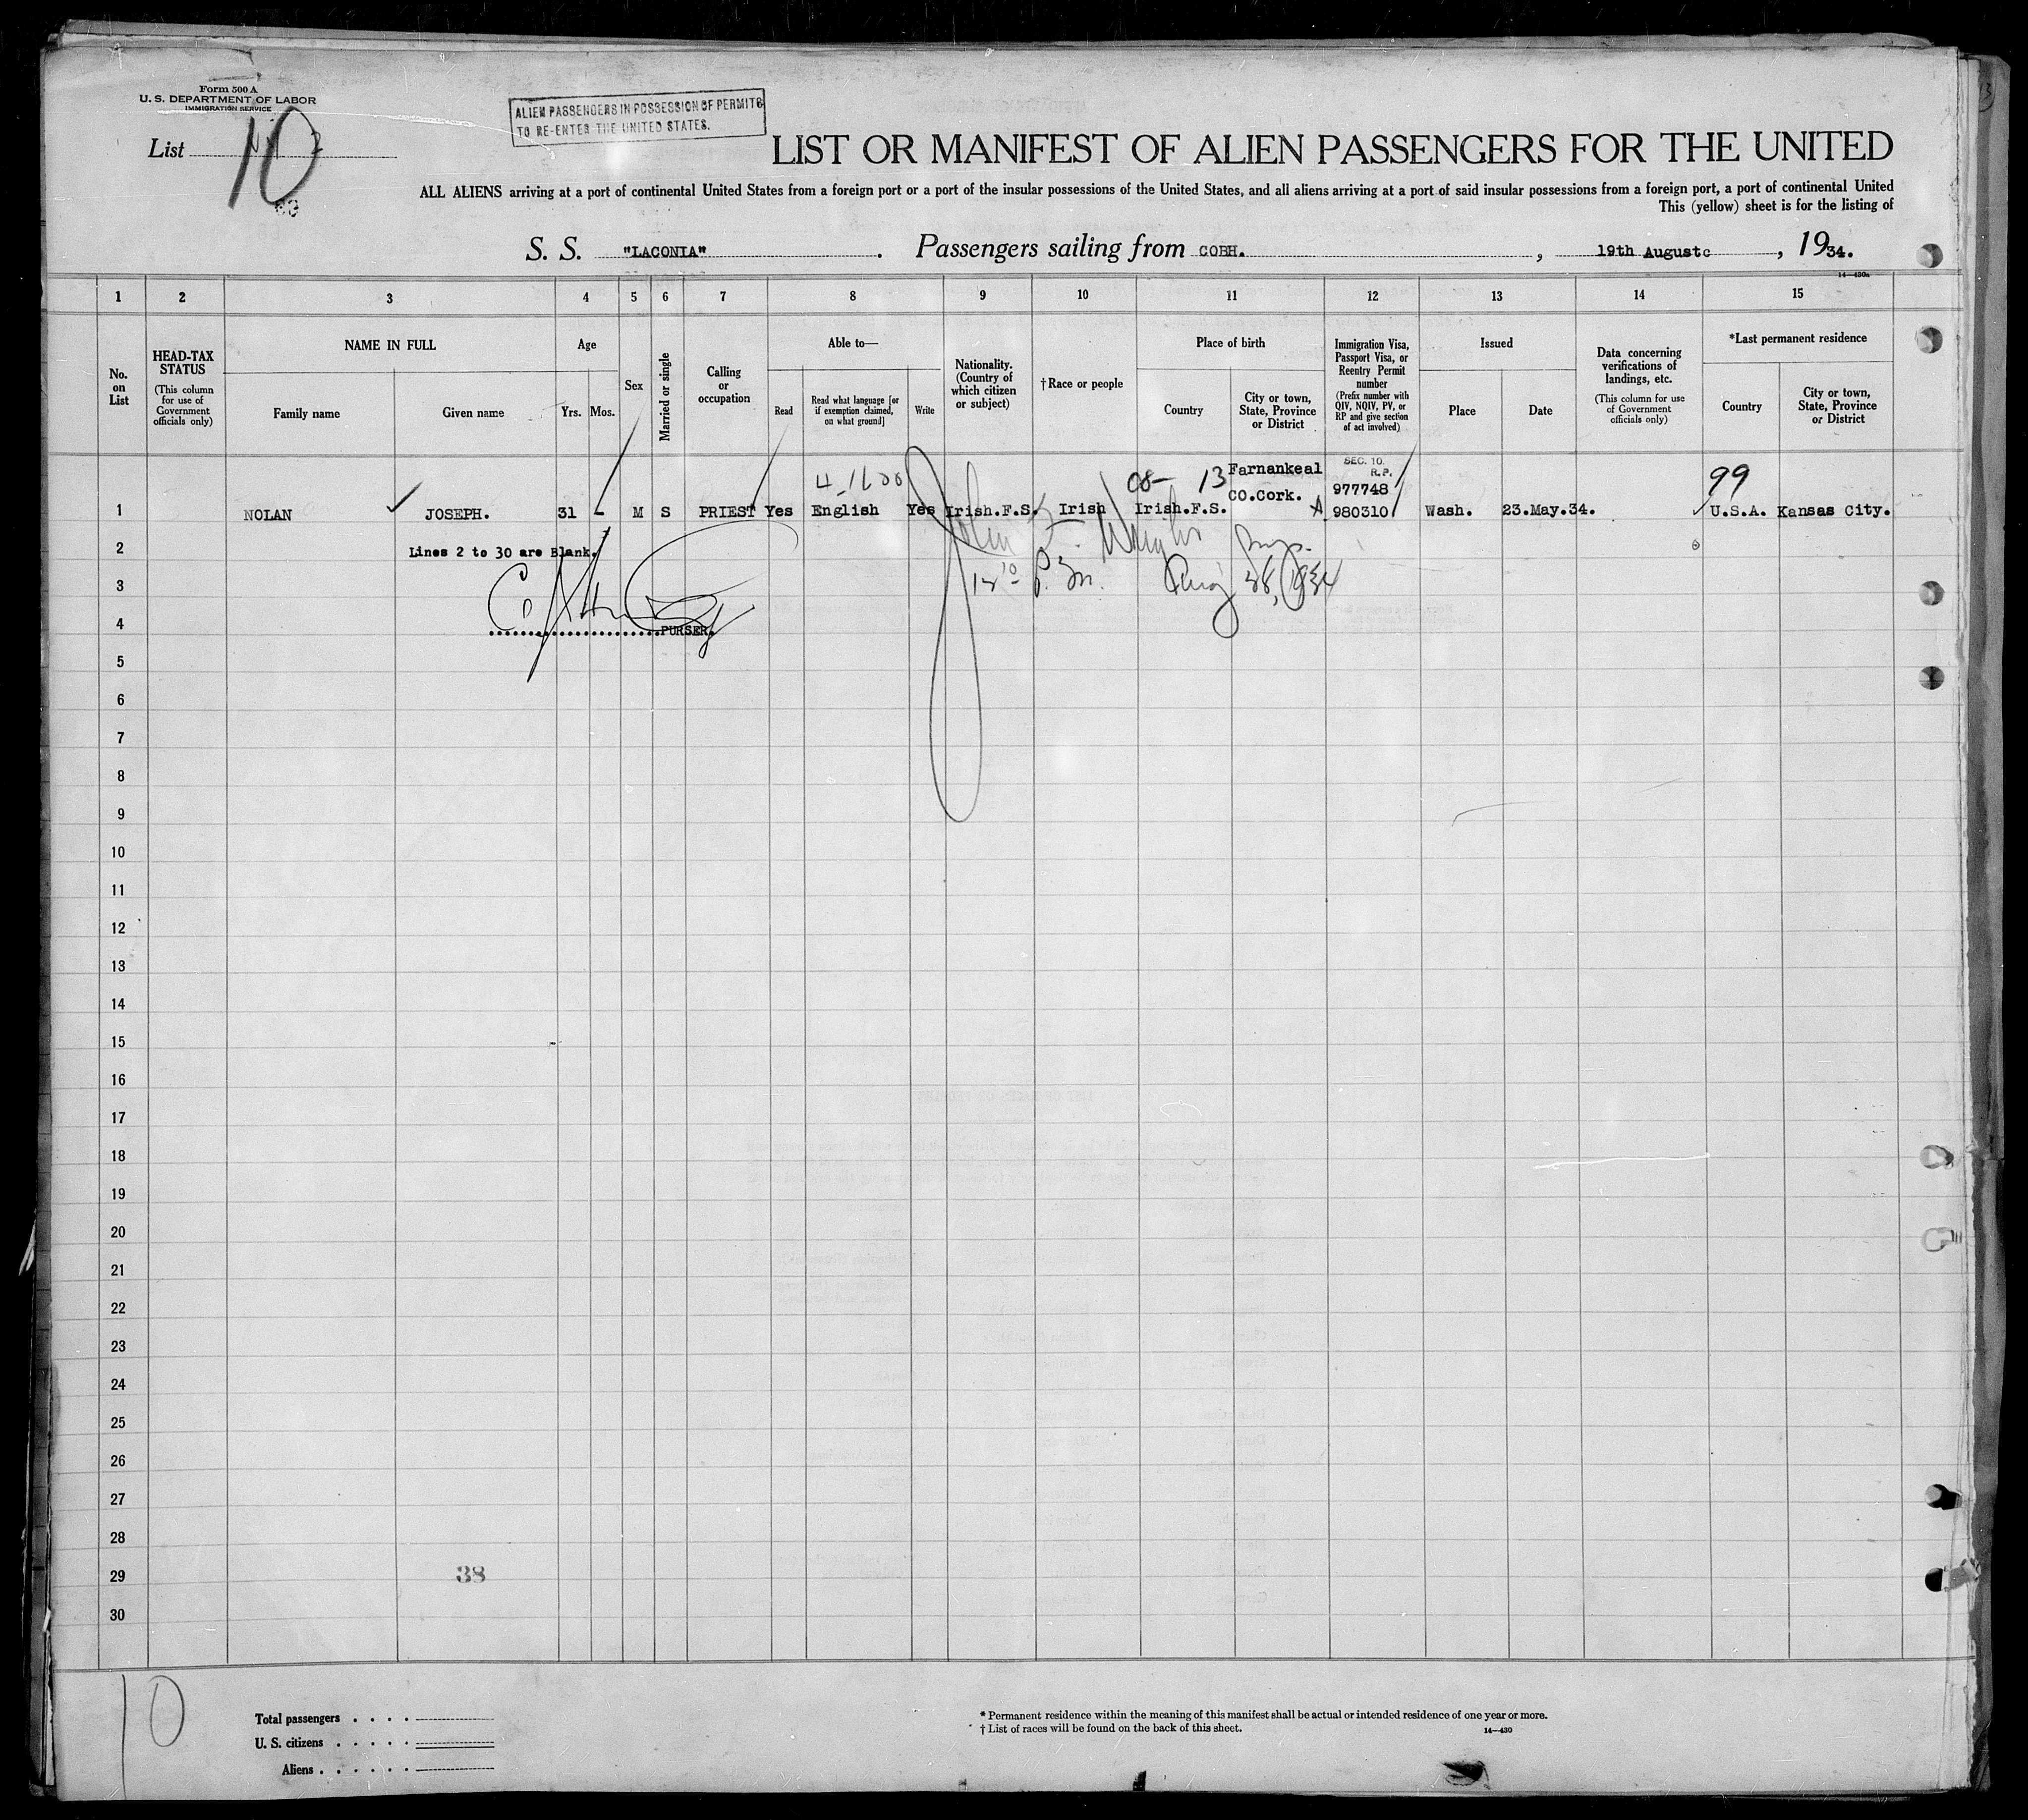 Form 500 A
U. S. DEPARTMENT OF LABOR
IMMIGRATION SERVICE
List 10
ALIEN PASSENGERS IN POSSESSION OF PERMITS
TO RE-ENTER THE UNITED STATES.
LIST OR MANIFEST OF ALIEN PASSENGERS FOR THE UNITED
ALL ALIENS arriving at a port of continental United States from a foreign port or a port of the insular possessions of the United States, and all aliens arriving at a port of said insular possessions from a foreign port, a port of continental United
This (yellow) sheet is for the listing of
S. S. "LACONIA". Passengers sailing from COBH. , 19th August , 1934.
14-430a
1 2 3 4 5 6 7 8 9 10 11 12 13 14 15
No. on List
HEAD-TAX STATUS
(This column for use of Government officials only)
NAME IN FULL
Family name
Given name
Age
Yrs.
Mos.
Sex
Married or single
Calling or occupation
Able to—
Read
Read what language [or if exemption claimed, on what ground]
Write
Nationality. (Country of which citizen or subject)
†Race or people
Place of birth
Country
City or town, State, Province or District
Immigration Visa, Passport Visa, or Reentry Permit number
(Prefix number with QIV, NQIV, PV, or RP and give section of act involved)
Issued
Place
Date
Data concerning verifications of landings, etc.
(This column for use of Government officials only)
*Last permanent residence
Country
City or town, State, Province or District
08- 13 Farnankeal SEC. 10. R.P. 99
CO.Cork. 977748
1 NOLAN JOSEPH. 31 - M S PRIEST Yes English Yes Irish.F.S. Irish Irish.F.S. A 980310 Wash. 23.May.34. U.S.A. Kansas City.
2 Lines 2 to 30 are Blank.
3 P.M. Aug 28, 1934
4 PURSER.
5
6
7
8
9
10
11
12
13
14
15
16
17
18
19
20
21
22
23
24
25
26
27
28
29 38
30
10
Total passengers
U. S. citizens
Aliens
* Permanent residence within the meaning of this manifest shall be actual or intended residence of one year or more.
† List of races will be found on the back of this sheet.
14-430